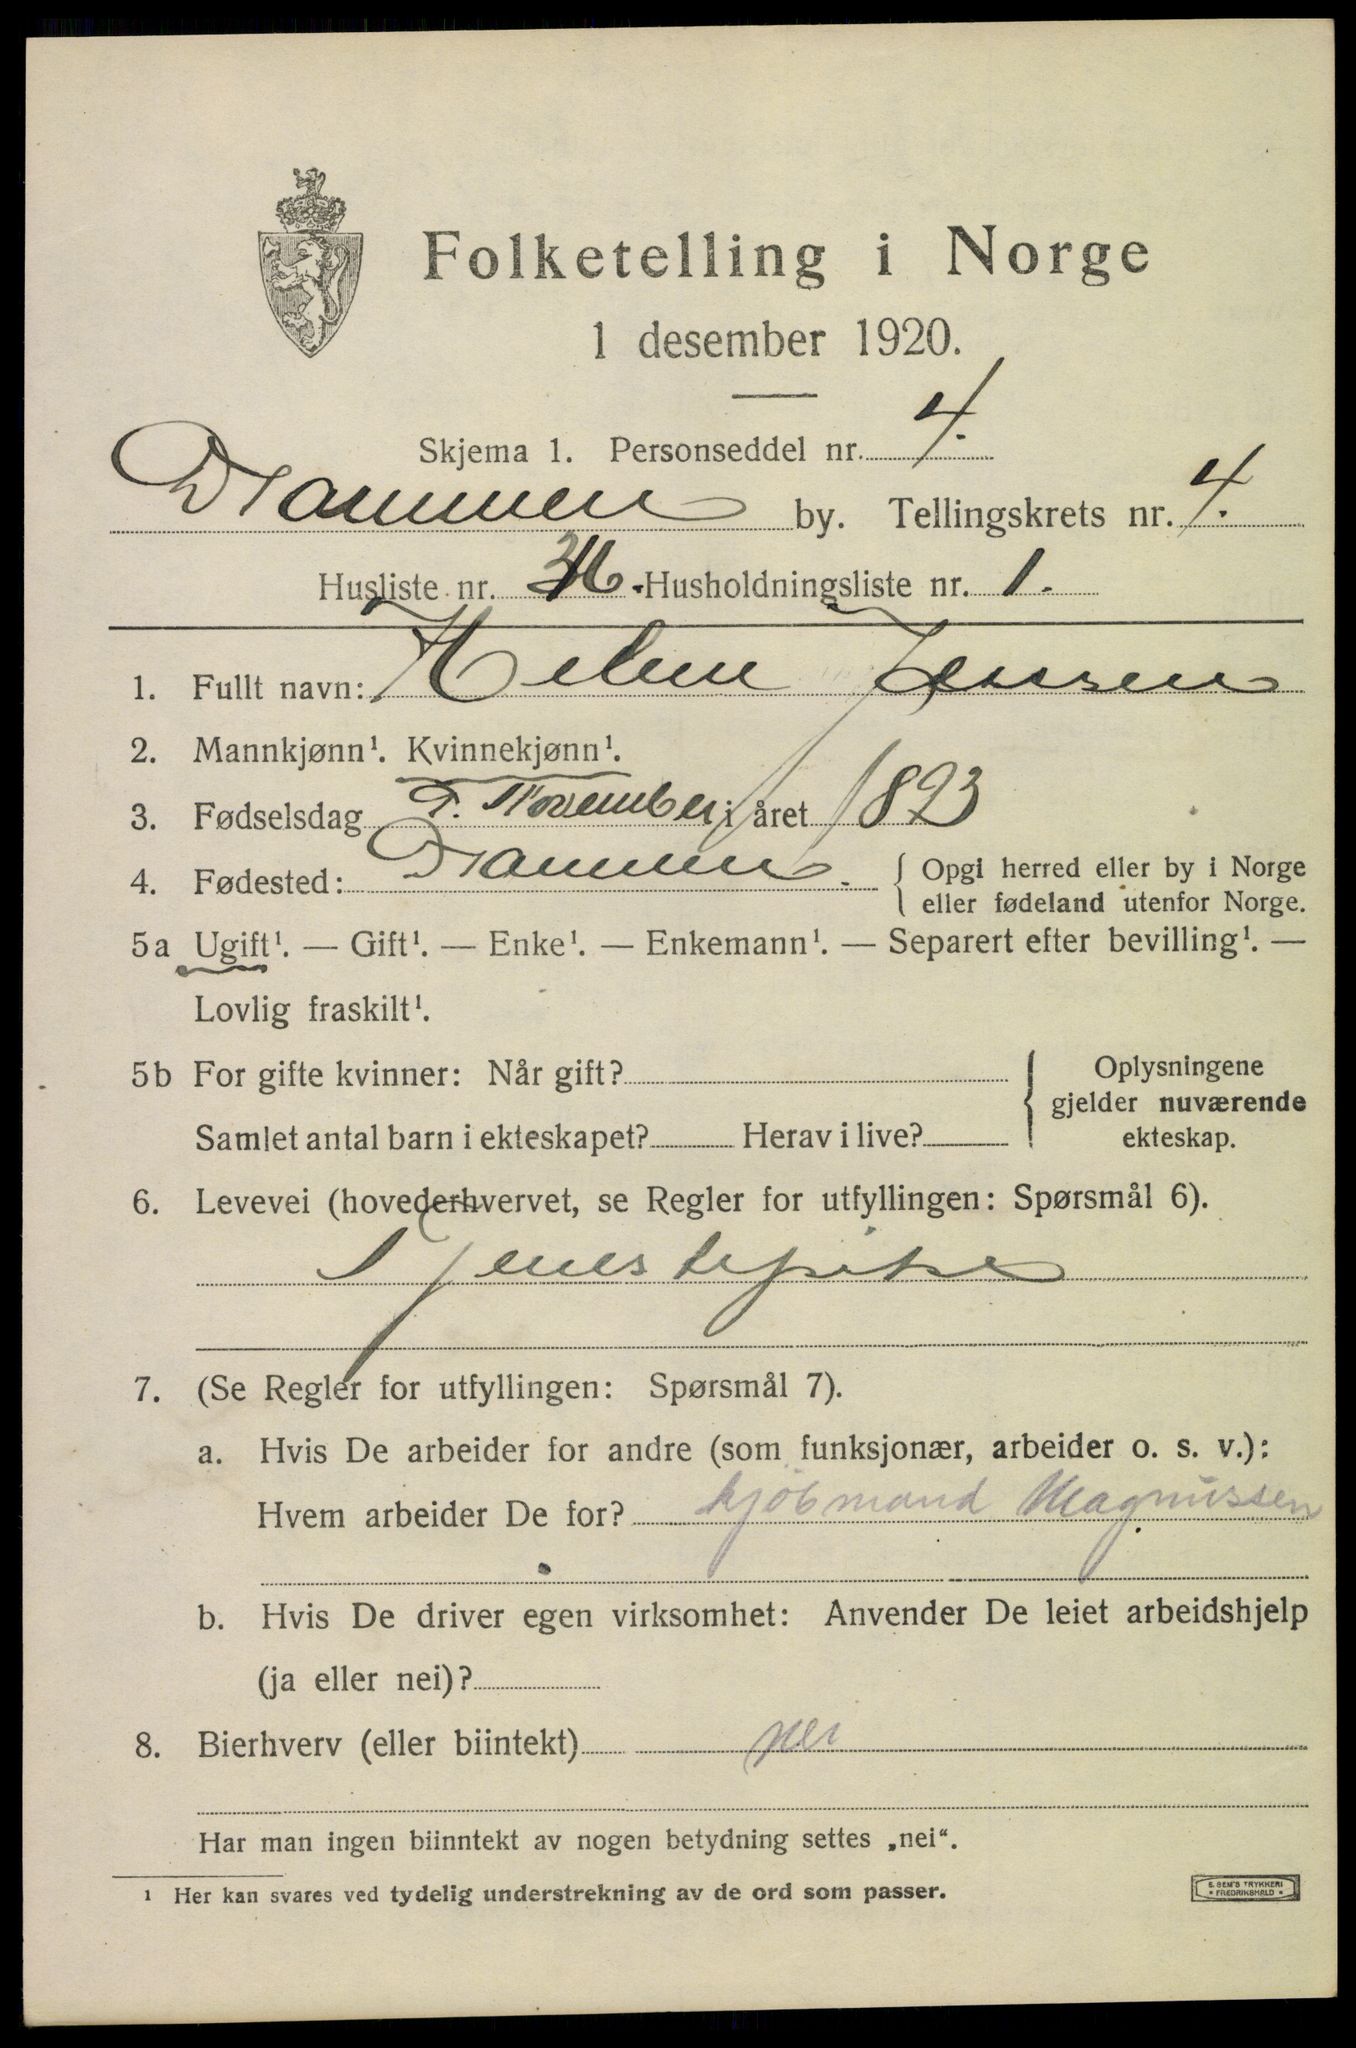 Folketelling i Norge
1 desember 1920.
Skjema 1. Personseddel nr. 4.
Drammen by. Tellingskrets nr. 4.
Husliste nr. Husholdningsliste nr. 1.
1. Fullt navn: Helene Jensen
2. Mannkjønn¹. Kvinnekjønn¹.
3. Fødselsdag 7. November i året 1893
4. Fødested: Drammen. { Opgi herred eller by i Norge
eller fødeland utenfor Norge.
5a Ugift¹. — Gift¹. — Enke¹. — Enkemann¹. — Separert efter bevilling¹. —
Lovlig fraskilt¹.
5b For gifte kvinner: Når gift? { Oplysningene
gjelder nuværende
Samlet antal barn i ekteskapet? Herav i live? ekteskap.
6. Levevei (hovederhvervet, se Regler for utfyllingen: Spørsmål 6).
Tjenestepike
7. (Se Regler for utfyllingen: Spørsmål 7).
a. Hvis De arbeider for andre (som funksjonær, arbeider o. s. v.):
Hvem arbeider De for? kjöbmand Magnussen
b. Hvis De driver egen virksomhet: Anvender De leiet arbeidshjelp
(ja eller nei)?
8. Bierhverv (eller biintekt) nei
Har man ingen biinntekt av nogen betydning settes „nei“.
¹ Her kan svares ved tydelig understrekning av de ord som passer.
E. SEM'S TRYKKERI
• FREDRIKSHALD •